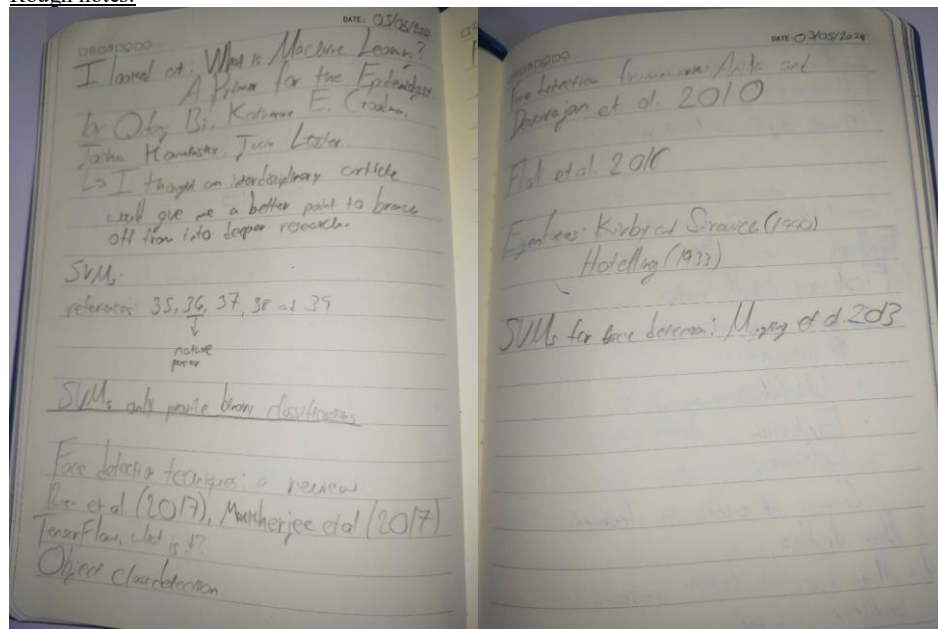 Rough notes:
DATE: 03/05/2024
I looked at: What is Machine Learning?
A Primer for the Epidemiologist
by Qifang Bi, Katherine E. Goodman,
Joshua Kaminsky, Justin Lessler
↳ I thought an interdisciplinary article
would give me a better point to branch
off from into deeper research.
SVMs
references 35, 36, 37, 38 and 39
↓
nature
paper
SVMs only provide binary classifications
Face detection techniques: a review
et al. (2017), Mukherjee et al (2017)
TensorFlow, what is it?
Object class detection
DATE: 03/05/2024
Face detection frameworks: Anila and
Devarajan et al. 2010
et al. 2016
Eigenfaces: Kirby and Sirovich (1990)
Hotelling (1933)
SVMs for face detection: et al. 2013